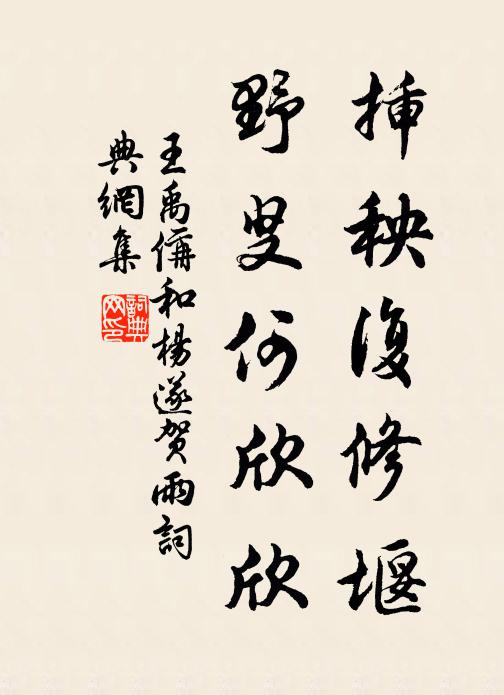 插秧復修堰
野叟何欣欣
王禹偁和楊遂賀雨詞
典網集
詞典網印